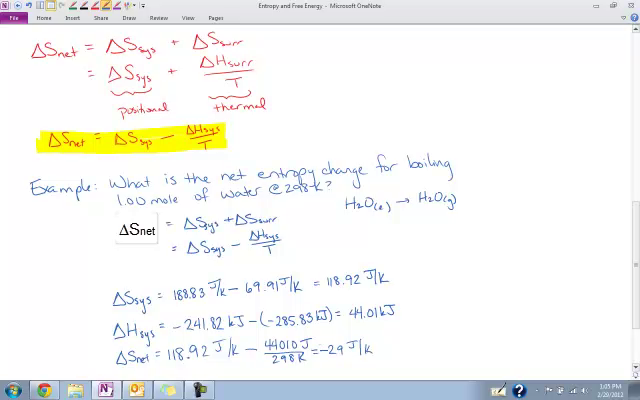 Entropy and Free Energy - Microsoft OneNote
File Home Insert Share Draw Review View
ΔSnet = ΔSsys + ΔSsurr
= ΔSsys + ΔHsurr/T
positional thermal
ΔSnet = ΔSsys − ΔHsys/T
Example: What is the net entropy change for boiling
1.00 mole of water @ 298 K?
H₂O(l) → H₂O(g)
ΔSnet = ΔSsys + ΔSsurr
= ΔSsys − ΔHsys/T
ΔSsys = 188.83 J/K − 69.91 J/K = 118.92 J/K
ΔHsys = −241.82 kJ − (−285.83 kJ) = 44.01 kJ
ΔSnet = 118.92 J/K − 44010 J/298 K = −29 J/K
1:05 PM
2/20/2012